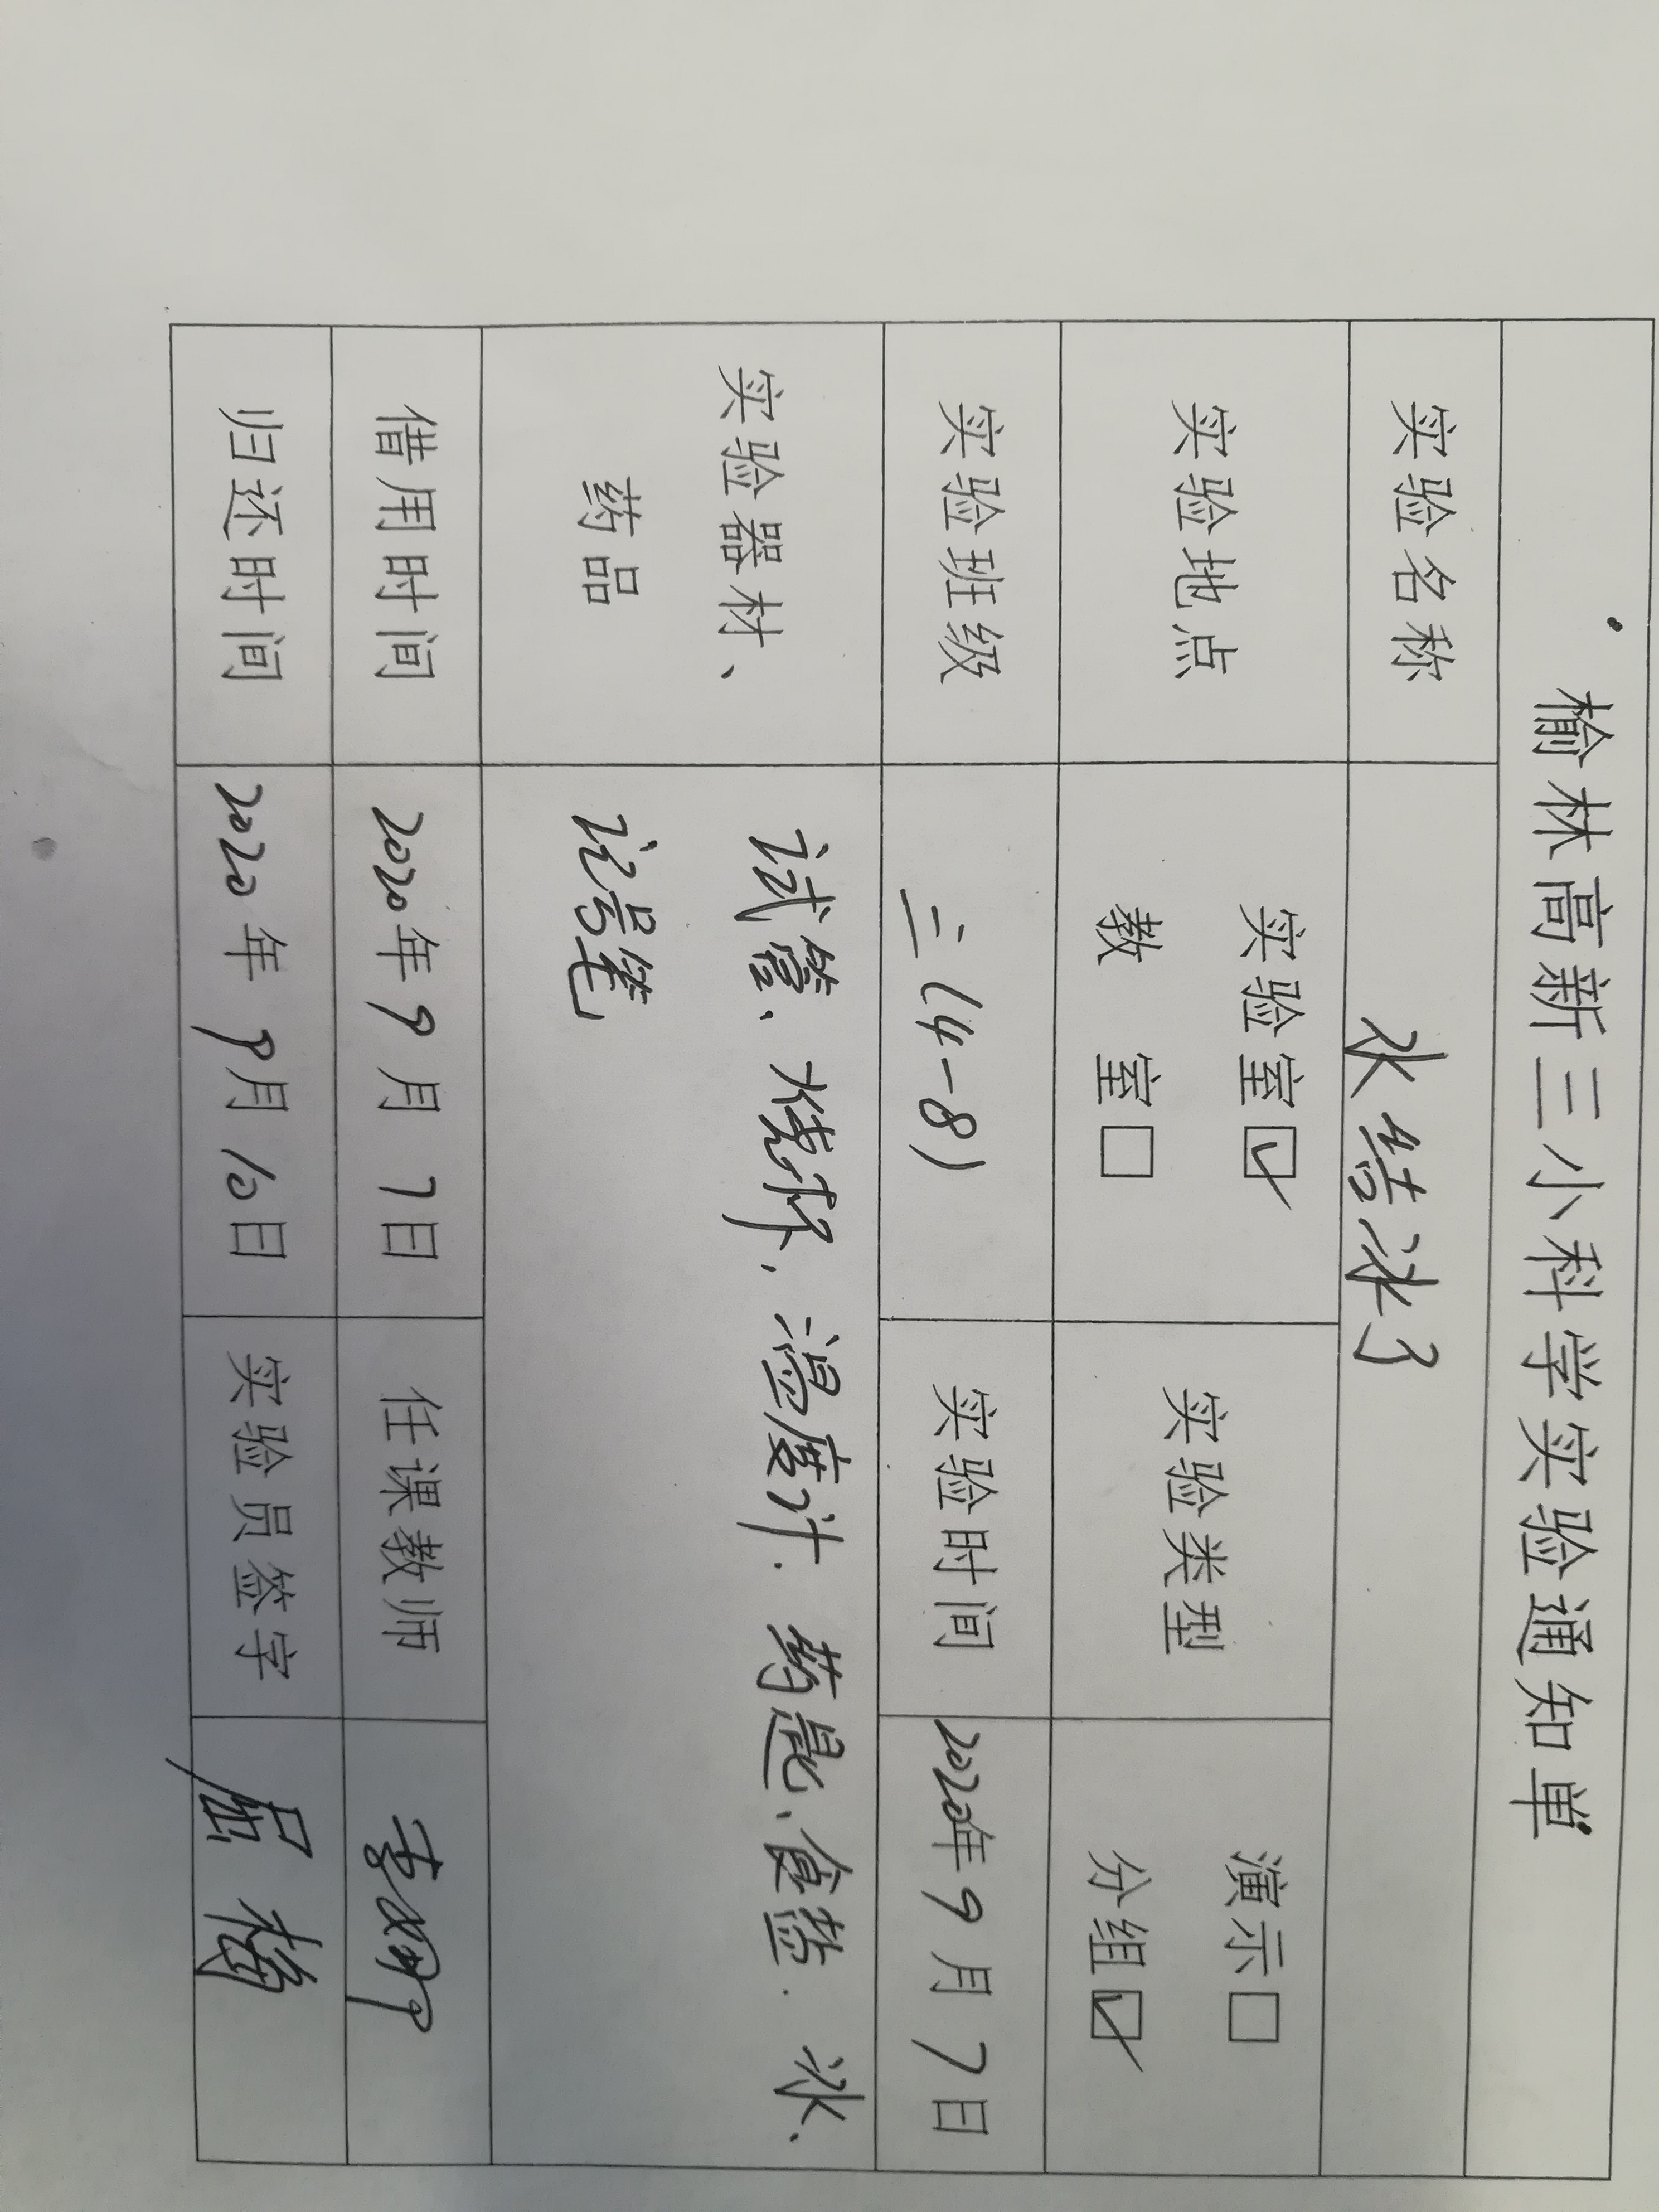 榆林高新三小科学实验通知单
实验名称 水结冰了
实验地点 实验室☑ 教 室☐ 实验类型 演示☐ 分组☑
实验班级 三(4-8) 实验时间 2020年9月7日
实验器材、药品 试管、烧杯、温度计、药匙、食盐、冰、
记号笔
借用时间 2020年9月7日 任课教师
归还时间 2020年9月10日 实验员签字 屈梅